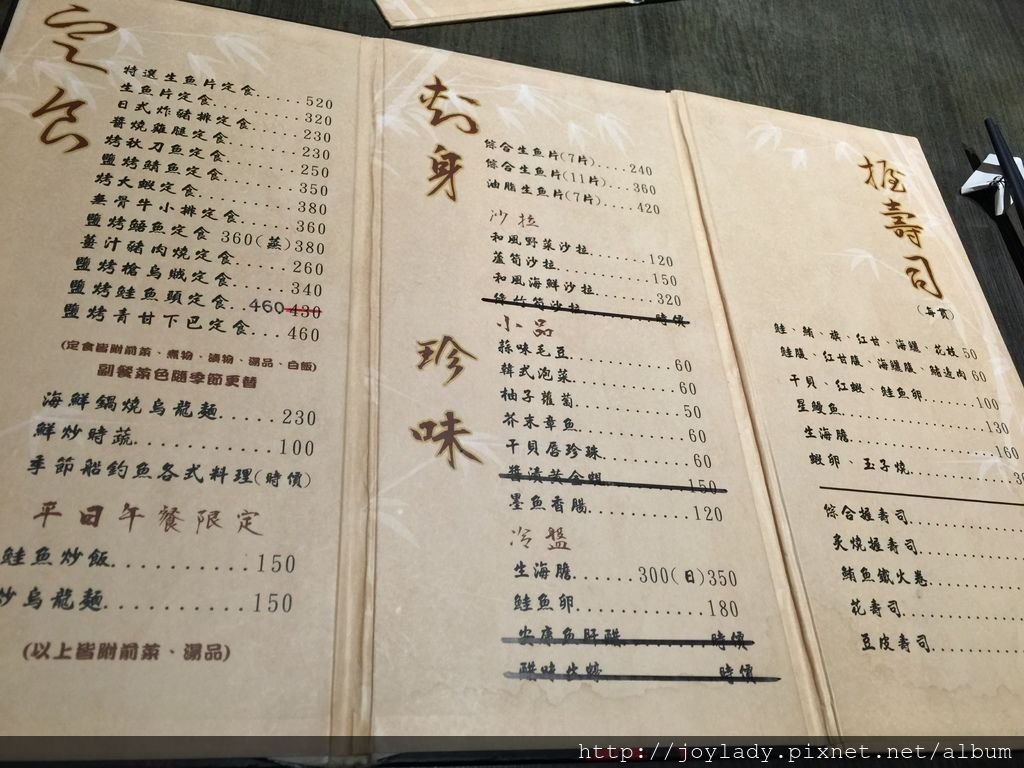 定食
特選生魚片定食.....520
生魚片定食........320
日式炸豬排定食.....230
醬燒雞腿定食.......230
烤秋刀魚定食.......250
鹽烤鯖魚定食.......350
烤大蝦定食........380
無骨牛小排定食......360
鹽烤鱈魚定食 360(蒸)380
薑汁豬肉燒定食.....260
鹽烤槍烏賊定食.....340
鹽烤鮭魚頭定食..460 430
鹽烤青甘下巴定食....460
(定食皆附前菜、煮物、漬物、湯品、白飯)
副餐菜色隨季節更替
海鮮鍋燒烏龍麵.....230
鮮炒時蔬...........100
季節船釣魚各式料理(時價)
平日午餐限定
鮭魚炒飯...........150
炒烏龍麵...........150
(以上皆附前菜、湯品)
刺身
綜合生魚片(7片)....240
綜合生魚片(11片)...360
油脂生魚片(7片)....420
沙拉
和風野菜沙拉.......120
蘆筍沙拉..........150
和風海鮮沙拉.......320
綠竹筍沙拉........時價
珍味
小品
蒜味毛豆...........60
韓式泡菜...........60
柚子蘿蔔...........50
芥末章魚...........60
干貝唇珍珠.........60
醬漬黃金蜆........150
墨魚香腸..........120
冷盤
生海膽......300(日)350
鮭魚卵............180
安康魚肝醋........時價
醋味生蠔..........時價
握壽司
(每貫)
鮭、鮪、旗、紅甘、海鱺、花枝 50
鮭腹、紅甘腹、海鱺腹、鮭近肉 60
干貝、紅蝦、鮭魚卵......100
星鰻魚................130
生海膽................160
蝦卵、玉子燒
綜合握壽司
炙燒握壽司
鮪魚鐵火卷
花壽司
豆皮壽司
http://joylady.pixnet.net/album